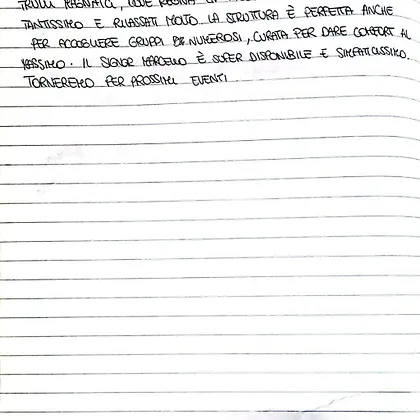 TRULLI MAGNATICI, DOVE REGNA
TANTISSIMO E RILASSATI MOLTO. LA STRUTTURA È PERFETTA ANCHE
PER ACCOGLIERE GRUPPI NUMEROSI, CURATA PER DARE COMFORT AL
MASSIMO. IL SIGNOR MARCELLO È SUPER DISPONIBILE E SIMPATICISSIMO.
TORNEREMO PER PROSSIMI EVENTI